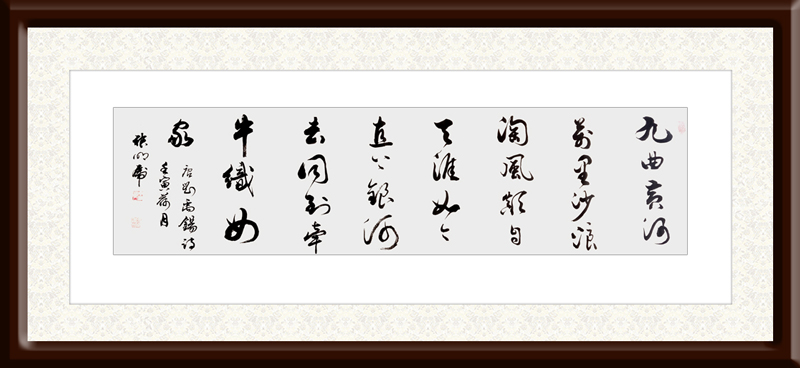 九曲黃河
萬里沙浪
淘風簸自
天涯如今
直上銀河
去同到牽
牛織女
家
唐劉禹錫詩
壬寅月